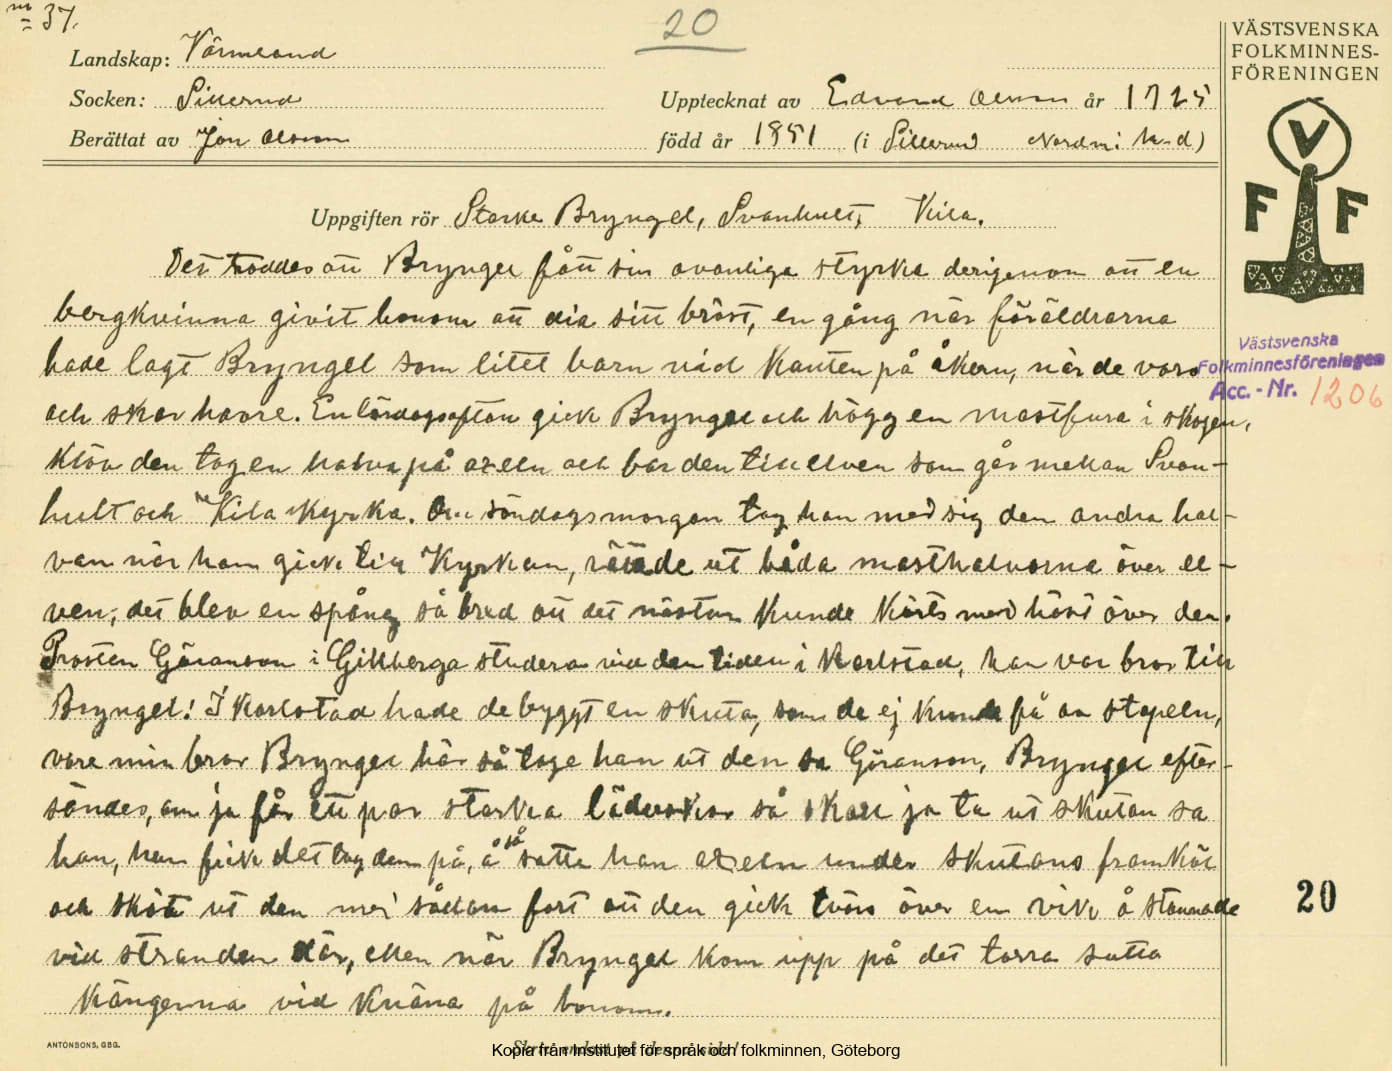 nr 37.
20
Landskap: Värmland
Socken: Sillerud
Upptecknat av Edvard Olsson år 1925
Berättat av Jon Olsson
född år 1851 (i Sillerud Nordm: h-d)
VÄSTSVENSKA
FOLKMINNES-
FÖRENINGEN
V
F F
Västsvenska
Folkminnesföreningen
Acc. - Nr. 1206
Uppgiften rör Starke Bryngel, Svanhult, Kila.
Det troddes att Bryngel fått sin ovanliga styrka derigenom att en
bergkvinna givit honom att dia sitt bröst, en gång när föräldrarna
hade lagt Bryngel som litet barn vid kanten på åkern, när de voro
och skar havre. En lördagsafton gick Bryngel och högg en mastfura i skogen,
klöv den tog en halva på axeln och bar den till elven som går mellan Svan-
hult och Kila kyrka. Om söndagsmorgon tog han med sig den andra hal-
van när han gick till kyrkan, rättade ut båda masthalvorna över el-
ven, det blev en spång så bred att det nästan kunde körts med häst över den.
Prosten Göranson i Gillberga studera vid den tiden i Karlstad, han var bror till
Bryngel! I Karlstad hade de byggt en skuta, som de ej kunde få av stapeln,
vore min bror Bryngel här så toge han ut den sa Göranson, Bryngel efter-
söndes, om ja får ett par starka läderskor så skall ja ta ut skutan sa
han, han fick det tog dem på, å så satte han axeln under skutans framköl
och sköt ut den med sådan fart att den gick tvärs över en vik å stannade
vid stranden där, ellen när Bryngel kom upp på det torra sutto
kängerna vid knäna på honom.
20
ANTONSONS, GBG.
Skriv endast på denna sida!
Kopia från Institutet för språk och folkminnen, Göteborg